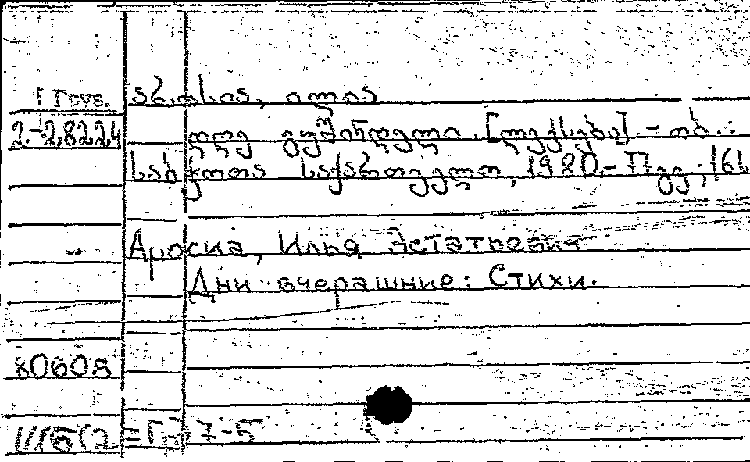 Г Груз.
2-28224
აროსია, ილია
დღე გუშინდელი. [ლექსები] - თბ.:
საბჭოთა საქართველო, 1980.- 77 გვ.; 16L
Аросиа, Илья Эстатьевич
Дни вчерашние: Стихи.
80608
7-5